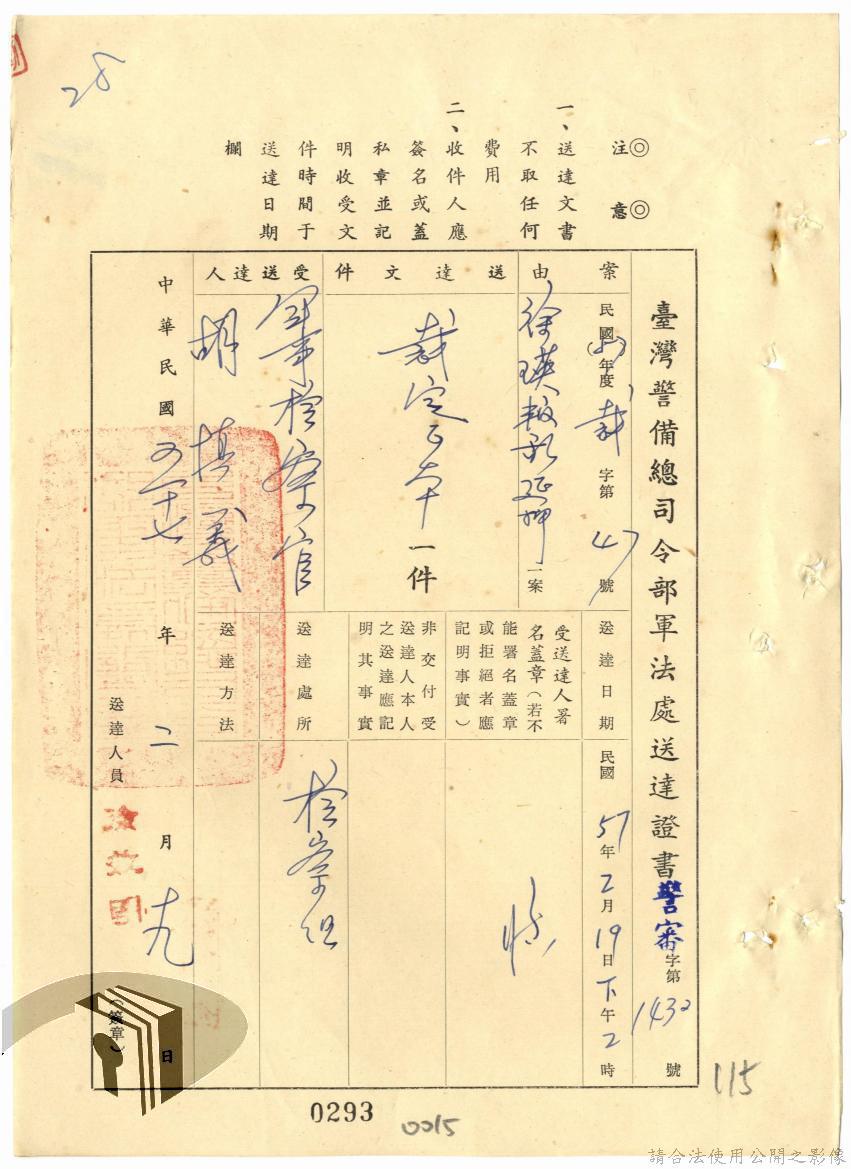 28
◎注意◎
一、送達文書
不取任何
費用
二、收件人應
簽名或蓋
私章並記
明收受文
件時間于
送達日期
欄
臺灣警備總司令部軍法處送達證書警審字第1432號
案由
民國57年度裁字第47號
徐瑛叛亂延押一案
送達文件
裁定正本一件
受送達人
軍事檢察官
胡
義
送達日期
民國57年2月19日下午2時
受送達人署
名蓋章(若不
能署名蓋章
或拒絕者應
記明事實)
非交付受
送達人本人
之送達應記
明其事實
送達處所
檢察組
送達方法
中華民國五十七年二月十九日
送達人員
(簽章)
115
0293
0015
請合法使用公開之影像